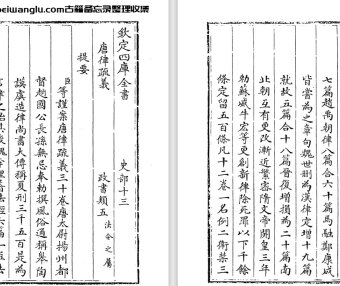 beiwanglu.com古籍备忘录整理收集
欽定四庫全書
史部十三
唐律疏義
政書類五 法令之屬
提要
臣等謹案唐律疏義三十卷唐太尉揚州都
督趙國公長孫無忌奉勅撰風俗通稱皐陶
謨虞造律尚書大傳稱夏刑三千五百是為
七篇趙禹朝律八篇合六十篇馬融鄭康成
皆嘗為之章句魏世刪為漢律定增十九篇
就故五篇合十八篇晉復增損為二十篇南
北朝互有更改漸近繁密隋文帝開皇三年
勅蘇威牛宏等更創新律除死罪以下千餘
條定留五百條凡十二卷一名例二衞禁三